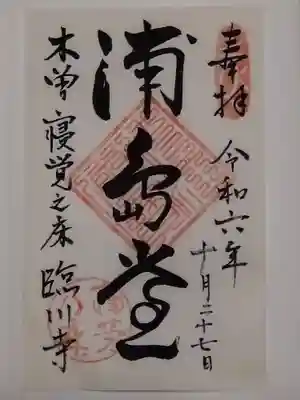 奉拝
令和六年
十月二十七日
浦島堂
木曽寝覚之床臨川寺